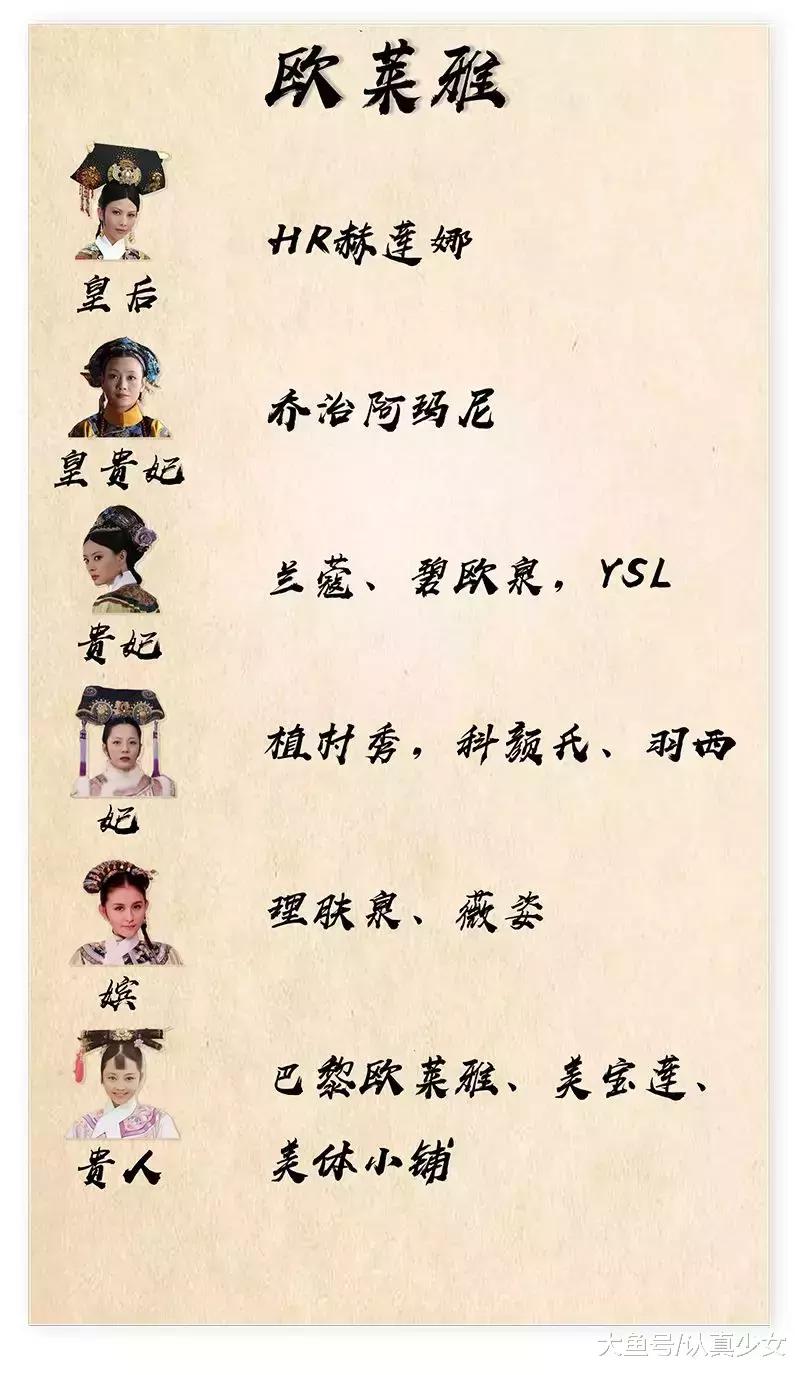 欧莱雅
HR赫莲娜
皇后
乔治阿玛尼
皇贵妃
兰蔻、碧欧泉，YSL
贵妃
植村秀，科颜氏、羽西
妃
理肤泉、薇姿
嫔
巴黎欧莱雅、美宝莲、
美体小铺
贵人
大鱼号/认真少女